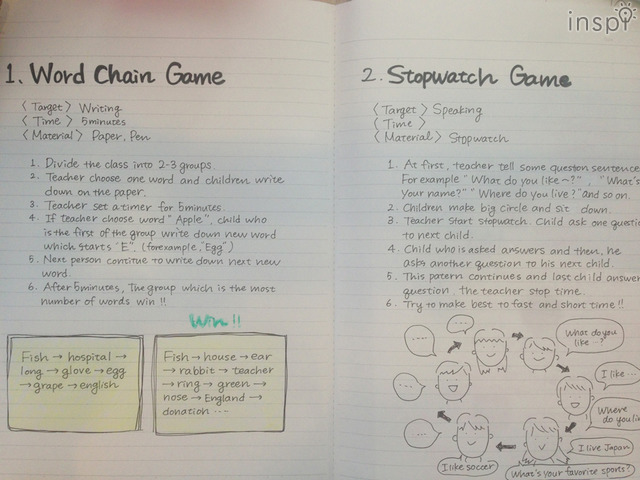 inspi
1. Word Chain Game
〈Target〉 Writing
〈Time〉 5minutes
〈Material〉 Paper, Pen
1. Divide the class into 2-3 groups.
2. Teacher choose one word and children write
down on the paper.
3. Teacher set a timer for 5minutes.
4. If teacher choose word "Apple", child who
is the first of the group write down new word
which starts "E". (forexample, "Egg")
5. Next person contitue to write down next new
word.
6. After 5minutes, The group which is the most
number of words win !!
Win !!
Fish → hospital →
long → glove → egg
→ grape → english
Fish → house → ear
→ rabbit → teacher
→ ring → green →
nose → England →
donation ...
2. Stopwatch Game
〈Target〉 Speaking
〈Time〉
〈Material〉 Stopwatch
1. At first, teacher tell some queston sentence
For example "What do you like ~?", "What's
Your name?" "Where do you live?" and so on.
2. Children make big circle and sit down.
3. Teacher start stopwatch. Child ask one quest
to next child.
4. Child who is asked answers and then, he
asks another question to his next child.
5. This patern continues and last child answer
question, The teacher stop time.
6. Try to make best to fast and short time !!
What do you
like ~?
I like ...
Where
do you li
I live Japan
What's your favorite sports?
I like soccer